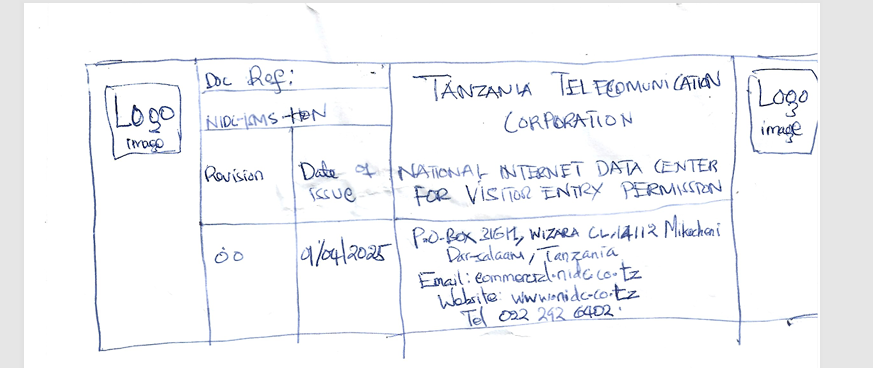 Logo
image
Doc Ref:
NIDC-IMS-
Revision
Date of
issue
00
9/04/2025
TANZANIA TELECOMUNICATION
CORPORATION
NATIONAL INTERNET DATA CENTER
FOR VISITOR ENTRY PERMISSION
P.O-BOX WIZARA 14112 Mikocheni
Dar-salaam, Tanzania
Email: nidc.co.tz
Website: www.nidc.co.tz
Tel 022 292 6402.
Logo
image